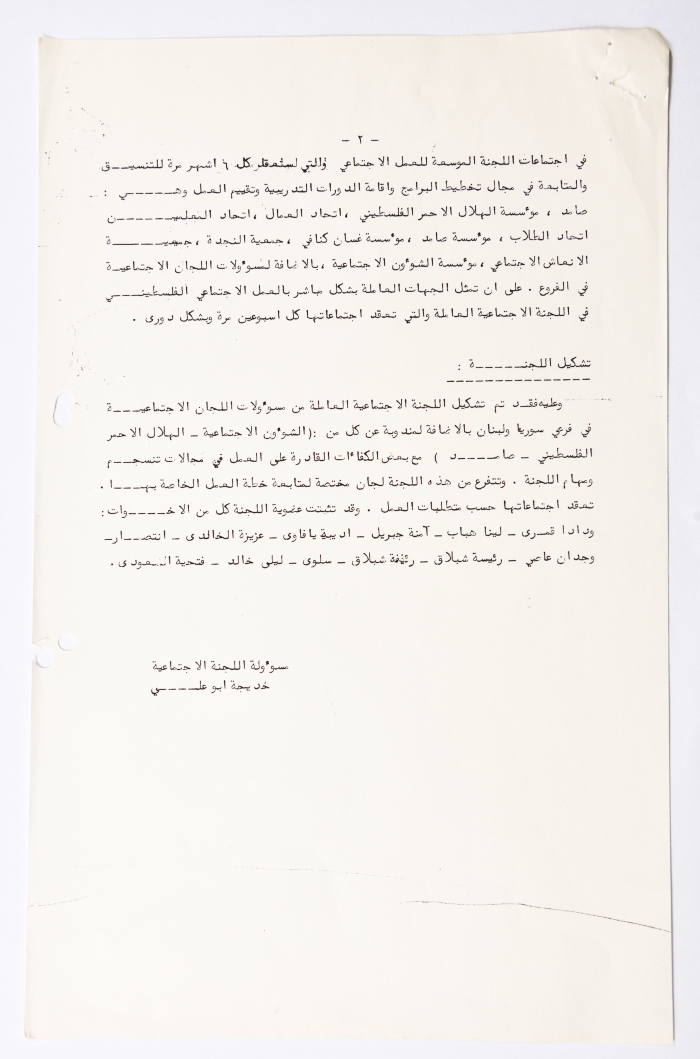 - ٢ -
في اجتماعات اللجنة الموسعة للعمل الاجتماعي والتي ستعقد كل ٦ اشهر مرة للتنسيق
والمتابعة في مجال تخطيط البرامج واقامة الدورات التدريبية وتقييم العمل وهي :
صامد ، مؤسسة الهلال الاحمر الفلسطيني ، اتحاد العمال ، اتحاد المعلمين
اتحاد الطلاب ، مؤسسة صامد ، مؤسسة غسان كنفاني ، جمعية النجدة ، جمعية
الانعاش الاجتماعي ، مؤسسة الشؤون الاجتماعية ، بالاضافة لمسؤولات اللجان الاجتماعية
في الفروع . على ان تمثل الجهات العاملة بشكل مباشر بالعمل الاجتماعي الفلسطيني
في اللجنة الاجتماعية العاملة والتي تعقد اجتماعاتها كل اسبوعين مرة وبشكل دورى .
تشكيل اللجنة :
وعليه فقد تم تشكيل اللجنة الاجتماعية العاملة من مسؤولات اللجان الاجتماعية
في فرعي سوريا ولبنان بالاضافة لمندوبة عن كل من :( الشؤون الاجتماعية - الهلال الاحمر
الفلسطيني - صامد ) مع بعض الكفاءات القادرة على العمل في مجالات تنسجم
ومهام اللجنة . وتتفرع من هذه اللجنة لجان مختصة لمتابعة خطة العمل الخاصة بها .
تعقد اجتماعاتها حسب متطلبات العمل . وقد تثبتت عضوية اللجنة كل من الاخوات :
ودادا قمرى - لينا هباب - آمنة جبريل - اديبة يافاوى - عزيزة الخالدى - انتصار -
وجدان عاصي - رئيسة شبلاق - رئيفة شبلاق - سلوى - ليلى خالد - فتحية السعودى .
مسؤولة اللجنة الاجتماعية
خديجة ابو علي